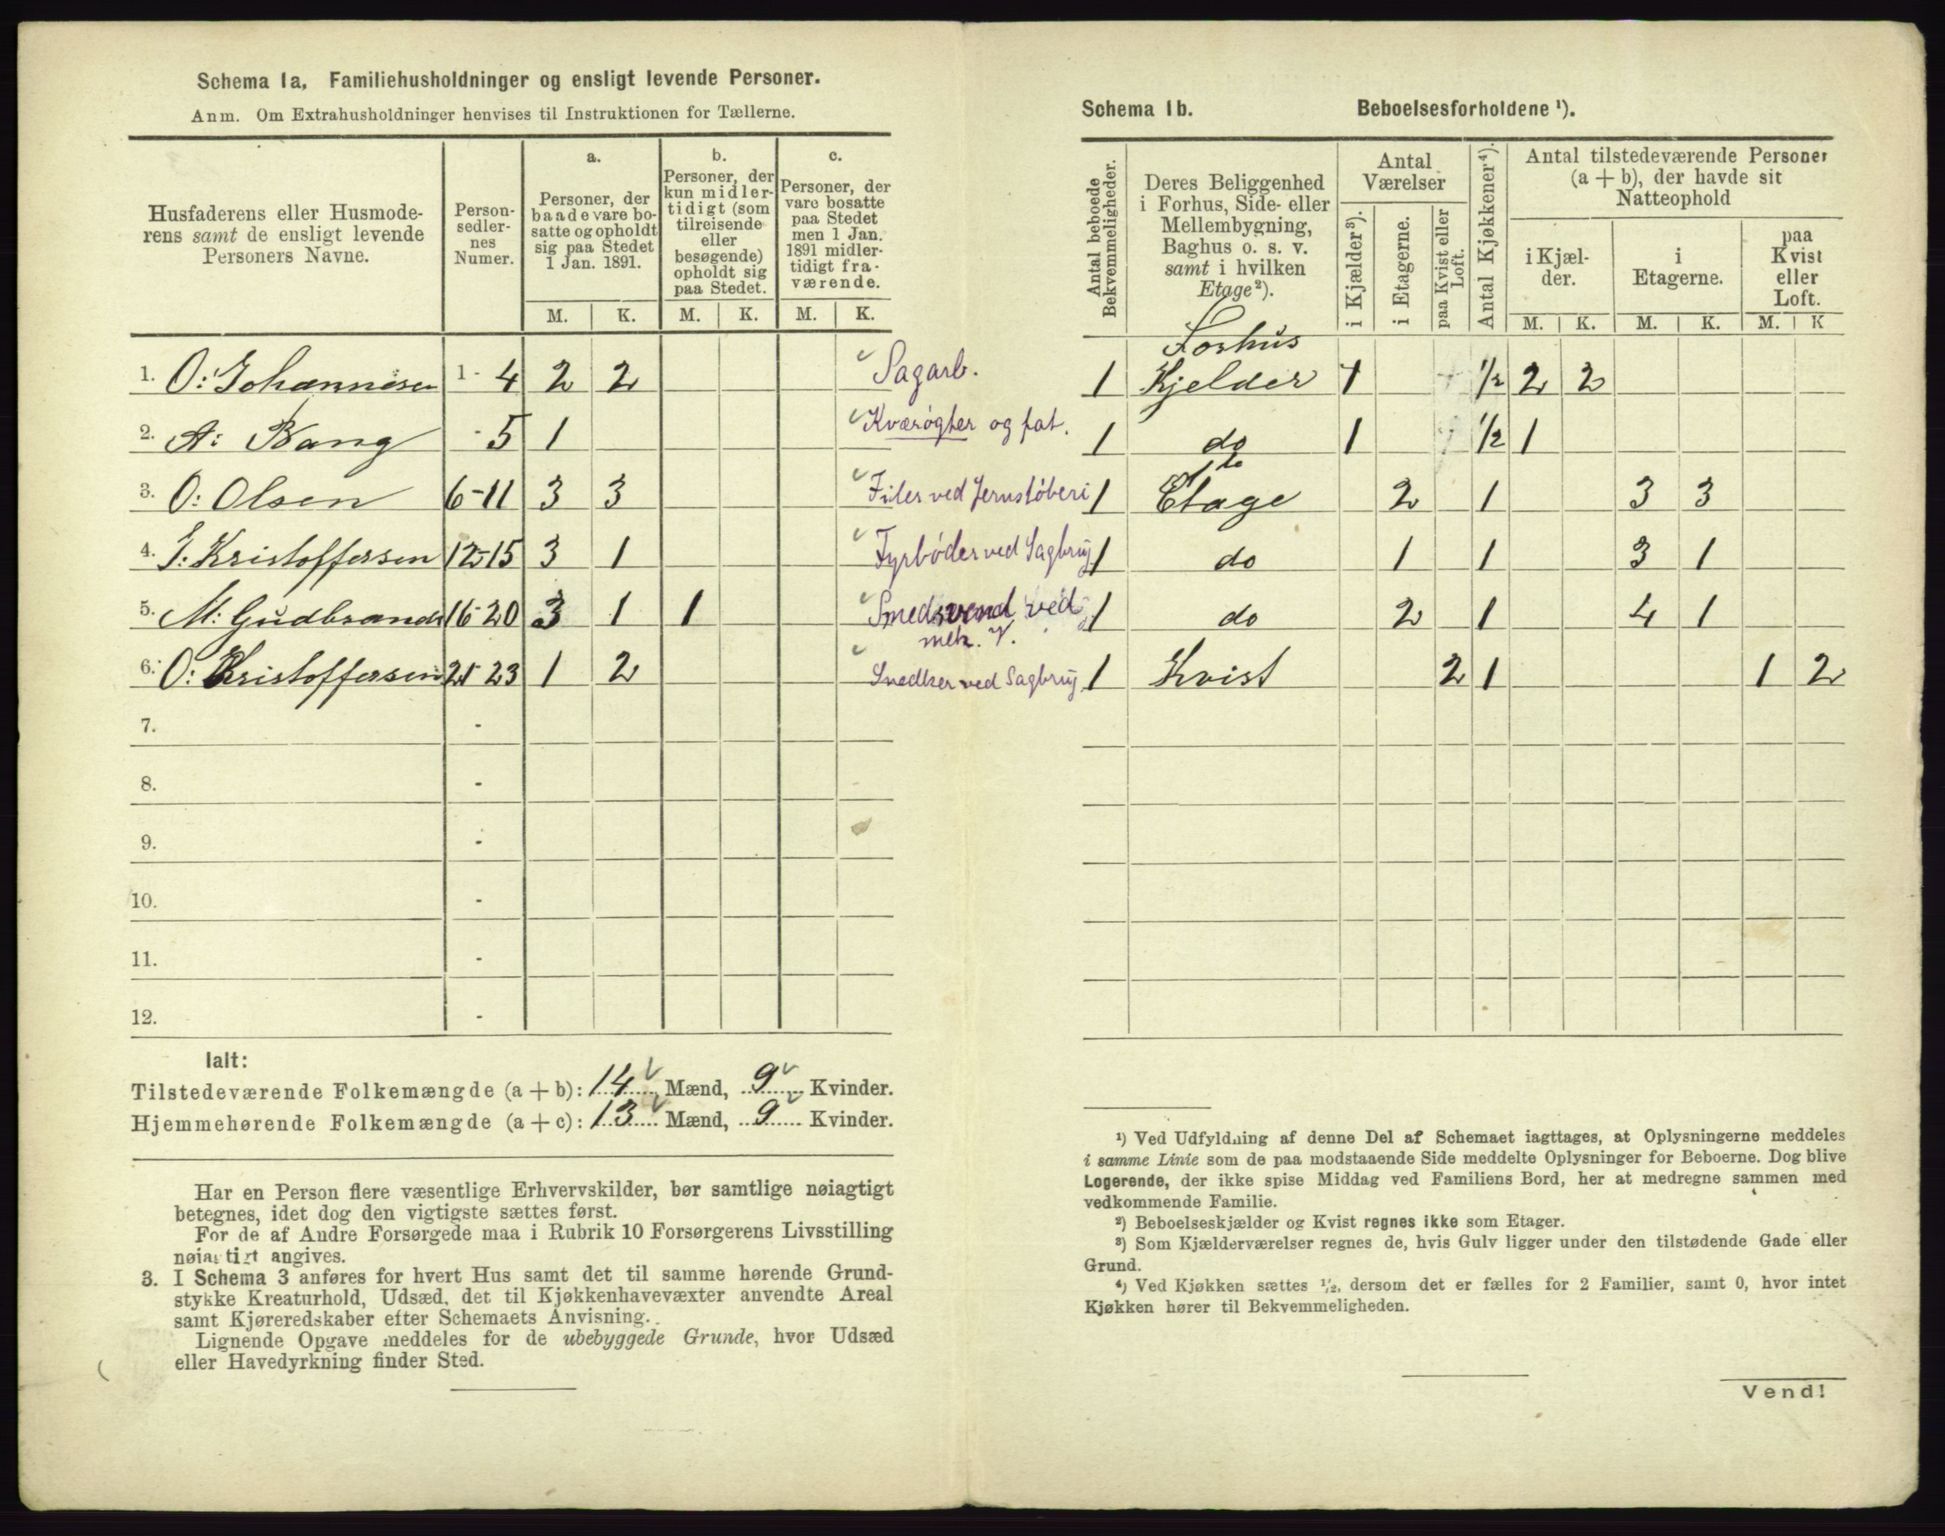 Schema 1a, Familiehusholdninger og ensligt levende Personer.
Anm. Om Extrahusholdninger henvises til Instruktionen for Tællerne.
Husfaderens eller Husmode-
rens samt de ensligt levende
Personers Navne.
Person-
sedler-
nes
Numer.
a.
Personer, der
baade vare bo-
satte og opholdt
sig paa Stedet
1 Jan. 1891.
b.
Personer, der
kun midler-
tidigt (som
tilreisende
eller
besøgende)
opholdt sig
paa Stedet.
c.
Personer, der
vare bosatte
paa Stedet
men 1 Jan.
1891 midler-
tidigt fra-
værende.
M. K. M. K. M. K.
1. O: Johannesen 1 - 4 2 2 Sagarb.
2. A: Bang - 5 1 Kværøgter og fat.
3. O: Olsen 6 - 11 3 3 Filer ved Jernstøberi
4. J: Kristoffersen 12-15 3 1 Fyrbøder ved Sagbrug
5. M: Gudbrands 16-20 3 1 1 Smedsvend ved
mek. V.
6. O: Kristoffersen 21-23 1 2 Snedker ved Sagbrug
7. -
8. -
9. -
10. -
11. -
12. -
Ialt:
Tilstedeværende Folkemængde (a + b): 14 Mænd, 9 Kvinder.
Hjemmehørende Folkemængde (a + c): 13 Mænd, 9 Kvinder.
Har en Person flere væsentlige Erhvervskilder, bør samtlige nøiagtigt
betegnes, idet dog den vigtigste sættes først.
For de af Andre Forsørgede maa i Rubrik 10 Forsørgerens Livsstilling
nøiagtigt angives.
3. I Schema 3 anføres for hvert Hus samt det til samme hørende Grund-
stykke Kreaturhold, Udsæd, det til Kjøkkenhavevæxter anvendte Areal
samt Kjøreredskaber efter Schemaets Anvisning.
Lignende Opgave meddeles for de ubebyggede Grunde, hvor Udsæd
eller Havedyrkning finder Sted.
Schema 1b. Beboelsesforholdene ¹).
Antal beboede
Bekvemmeligheder.
Deres Beliggenhed
i Forhus, Side- eller
Mellembygning,
Baghus o. s. v.
samt i hvilken
Etage²).
Antal
Værelser
i Kjælder³).
i Etagerne.
paa Kvist eller
Loft.
Antal Kjøkkener⁴).
Antal tilstedeværende Personer
(a + b), der havde sit
Natteophold
i Kjæl-
der.
i
Etagerne.
paa
Kvist
eller
Loft.
M. K. M. K. M. K
Forhus
1 Kjelder 1 1/2 2 2
1 do 1 1/2 1
do
1 Etage 2 1 3 3
1 do 1 1 3 1
1 do 2 1 4 1
1 Kvist 2 1 1 2
¹) Ved Udfyldning af denne Del af Schemaet iagttages, at Oplysningerne meddeles
i samme Linie som de paa modstaaende Side meddelte Oplysninger for Beboerne. Dog blive
Logerende, der ikke spise Middag ved Familiens Bord, her at medregne sammen med
vedkommende Familie.
²) Beboelseskjælder og Kvist regnes ikke som Etager.
³) Som Kjælderværelser regnes de, hvis Gulv ligger under den tilstødende Gade eller
Grund.
⁴) Ved Kjøkken sættes ¹/₂, dersom det er fælles for 2 Familier, samt 0, hvor intet
Kjøkken hører til Bekvemmeligheden.
Vend!